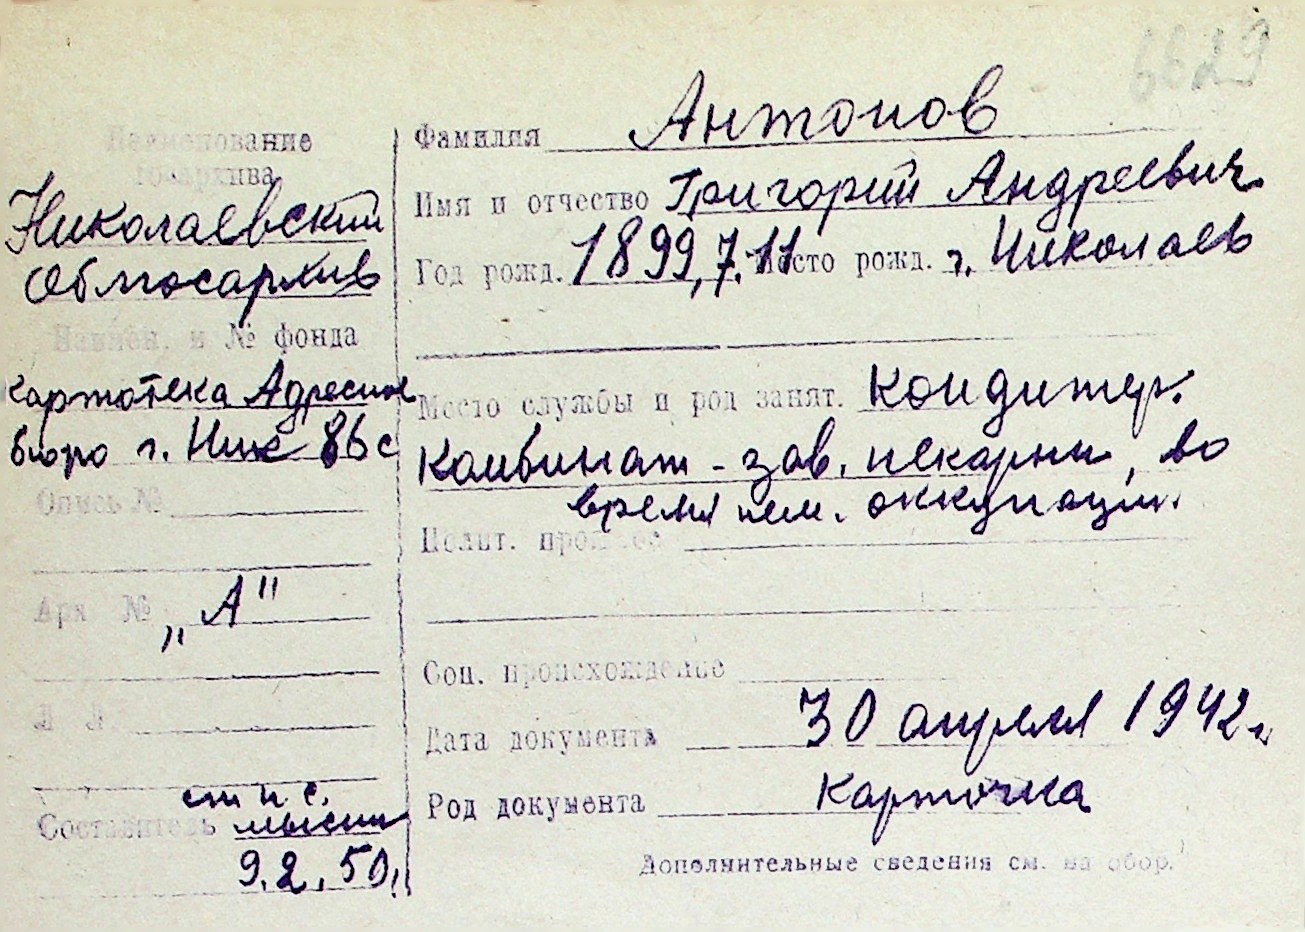 6629
Наименование
госархива
Николаевский
Облгосархив
Наимен. и № фонда
картотека Адресное
бюро г. Ник 86с
Опись №
Арх №
„А"
Л Л
ст н. с.
Составитель
9.2.50.
Фамилия Антонов
Имя и отчество Григорий Андреевич
Год рожд. 1899, 7.11 Место рожд. г. Николаев
Место службы и род занят. Кондитер.
Комбинат - зав. пекарни, во
время нем. оккупации.
Полит. прошлое
Соц. происхождение
Дата документа 30 апреля 1942 г.
Род документа Карточка
Дополнительные сведения см. на обор.